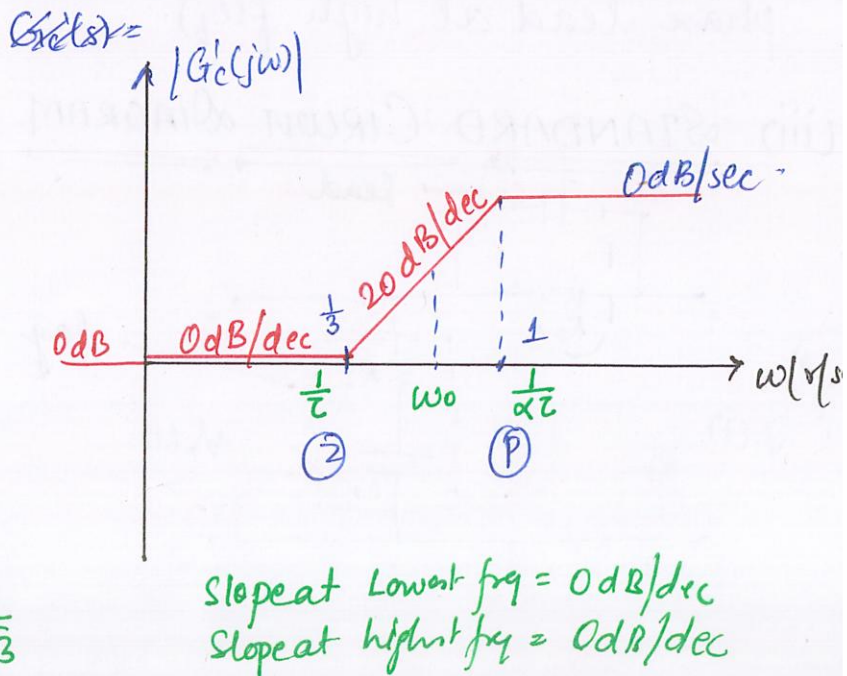 Gc'(s)=
|G'c(jω)|
0dB/sec
20dB/dec
1/3
1
0dB
0dB/dec
1/τ
ω0
1/ατ
ω(r/s
Z
P
Slope at Lowest frq = 0dB/dec
3
Slope at highest frq = 0dB/dec